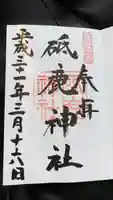 奉拝
砥鹿神社
平成三十一年三月十六日